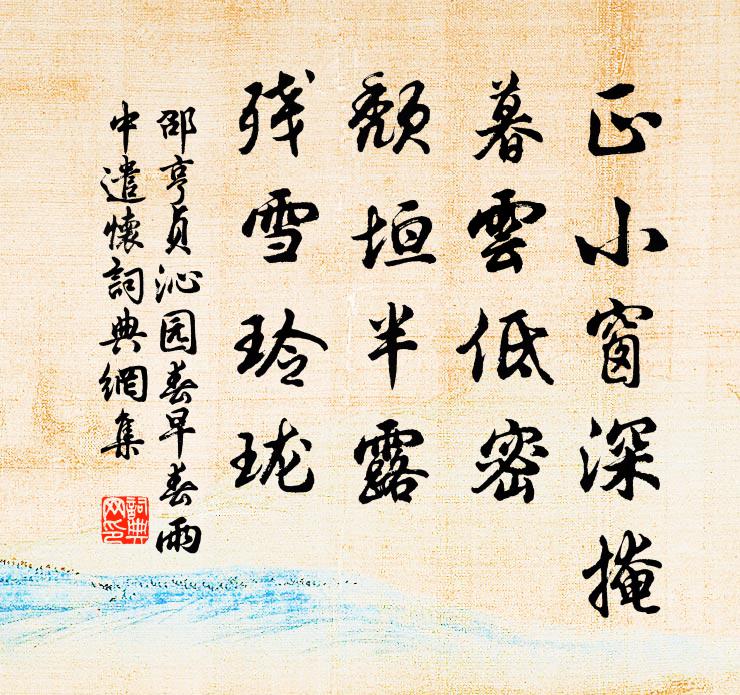 正小窗深掩
暮雲低密
頹垣半露
残雪玲珑
邵亨贞沁园春早春雨
中遣懷詞典網集
詞典
网印